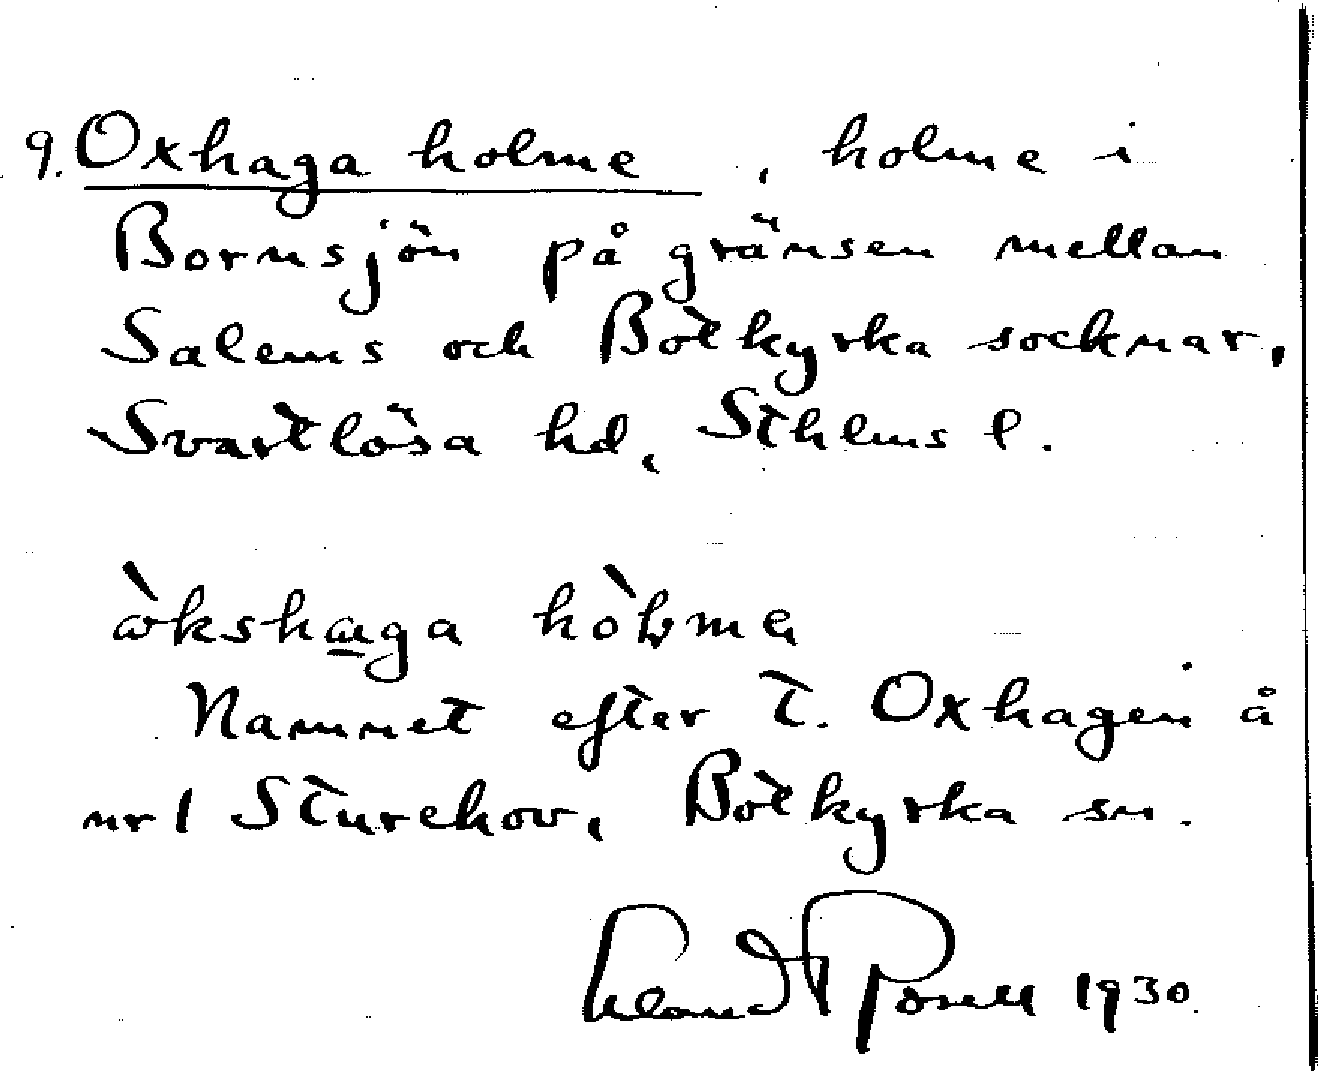 9. Oxhaga holme, holme i
Bornsjön på gränsen mellan
Salems och Botkyrka socknar,
Svartlösa hd, Sthlms l.
òkshaga hòlmɐ
Namnet efter t. Oxhagen å
nr 1 Sturehov, Botkyrka sn.
1930.